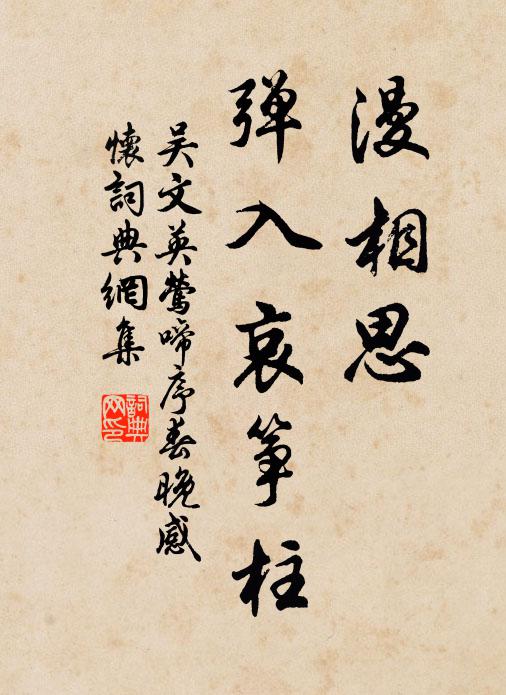 漫相思
弹入哀筝柱
吴文英莺啼序春晚感
懷詞典網集
詞典
网印